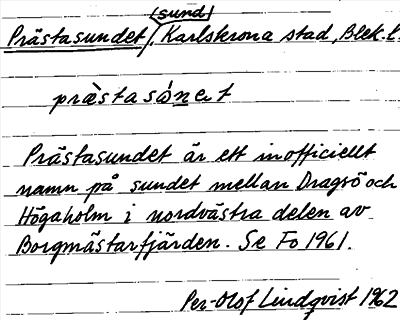 (sund)
Prästasundet, Karlskrona stad, Blek. l.
præ̀stasúnet
Prästasundet är ett inofficiellt
namn på sundet mellan Dragsö och
Högaholm i nordvästra delen av
Borgmästarfjärden. Se Fo 1961.
Per-Olof Lindqvist 1962